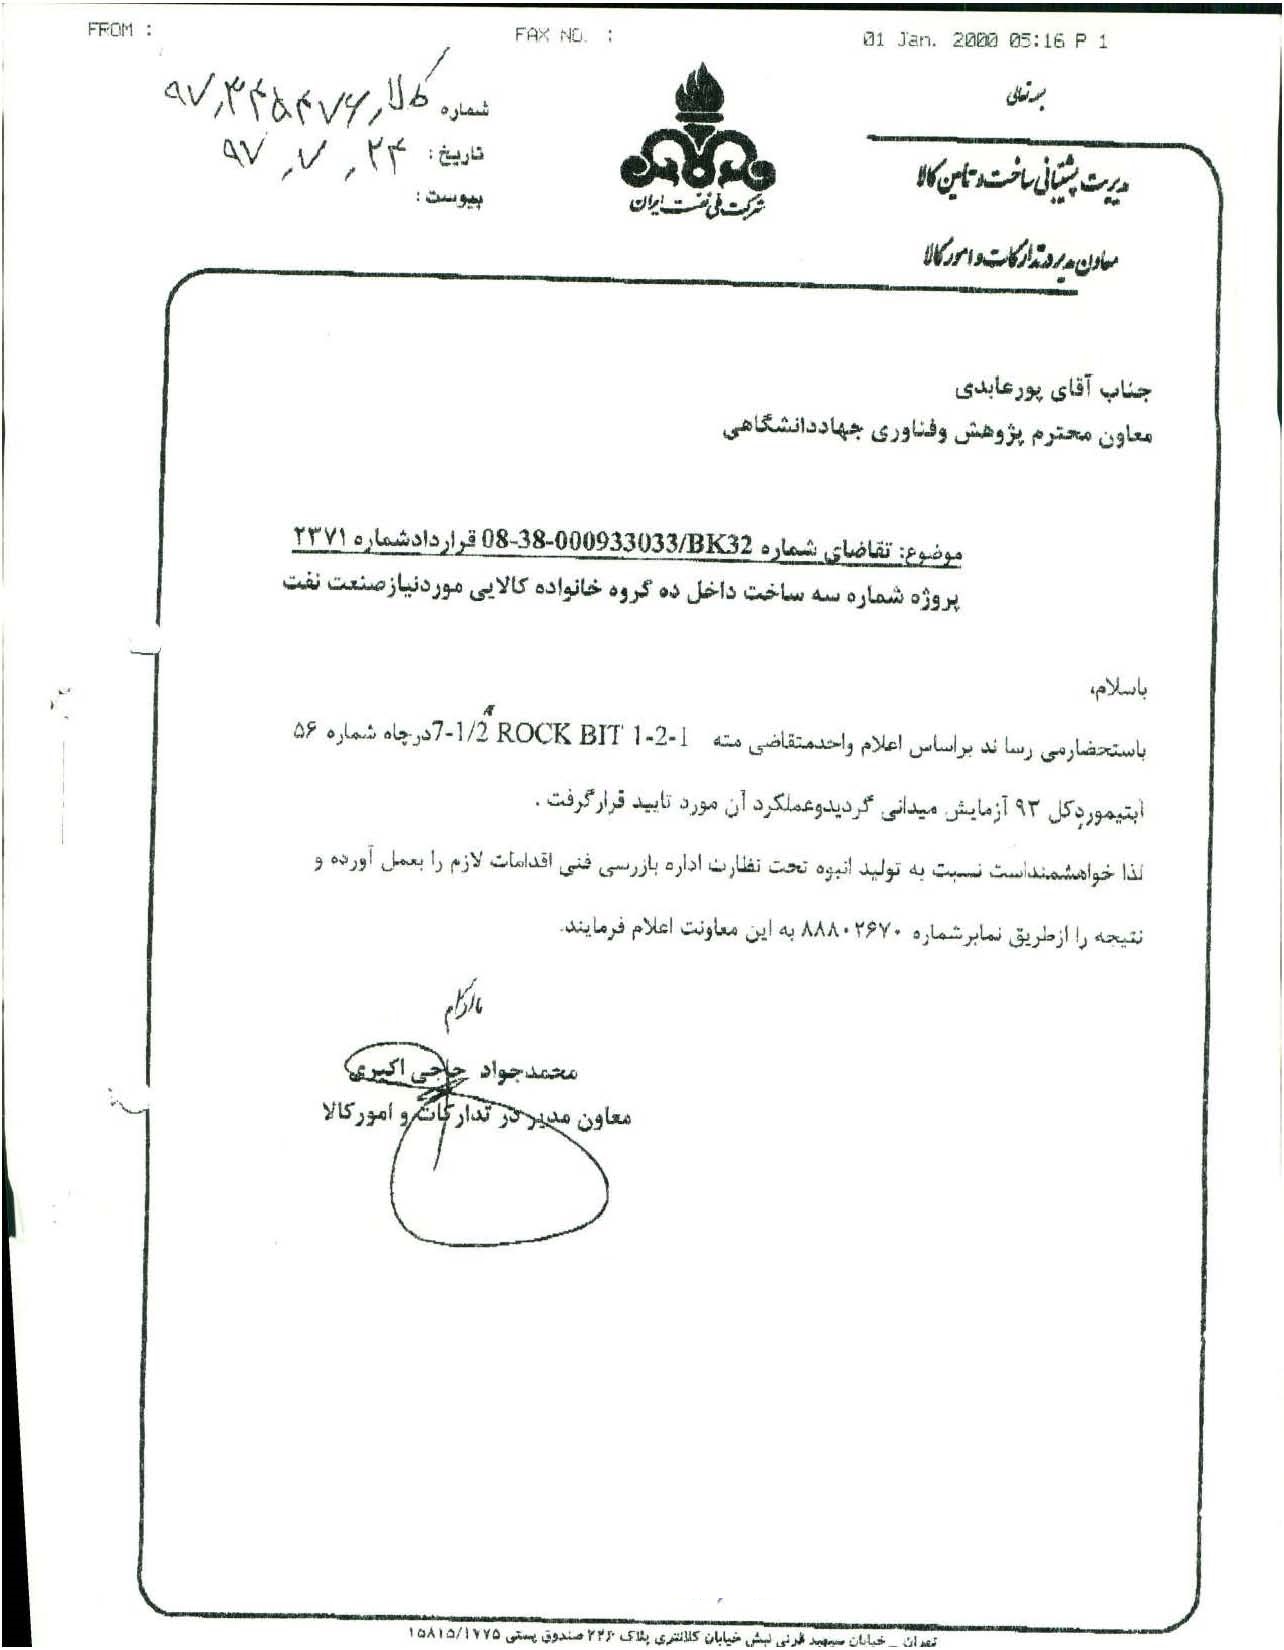 FROM :
FAX NO. :
01 Jan. 2000 05:16 P 1
بسمه تعالی
شماره کالا/۹۷/۳۴۵۴۷۶
تاریخ: ۹۷/۷/۲۴
پیوست:
شرکت ملی نفت ایران
مدیریت پشتیبانی ساخت و تأمین کالا
معاون مدیر در تدارکات و امور کالا
جناب آقای پورعابدی
معاون محترم پژوهش وفناوری جهاددانشگاهی
موضوع: تقاضای شماره 08-38-000933033/BK32 قراردادشماره ۲۳۷۱
پروژه شماره سه ساخت داخل ده گروه خانواده کالایی موردنیازصنعت نفت
باسلام،
باستحضارمی رسا ند براساس اعلام واحدمتقاضی مته 7-1/2" ROCK BIT 1-2-1درچاه شماره ۵۶
ابتیموردکل ۹۳ آزمایش میدانی گردیدوعملکرد آن مورد تایید قرارگرفت .
لذا خواهشمنداست نسبت به تولید انبوه تحت نظارت اداره بازرسی فنی اقدامات لازم را بعمل آورده و
نتیجه را ازطریق نمابرشماره ۸۸۸۰۲۶۷۰ به این معاونت اعلام فرمایند.
محمدجواد حاجی اکبری
معاون مدیر در تدارکات و امورکالا
تهران _ خیابان سپهبد قرنی نبش خیابان کلانتری پلاک ۲۲۶ صندوق پستی ۱۵۸۱۵/۱۷۷۵